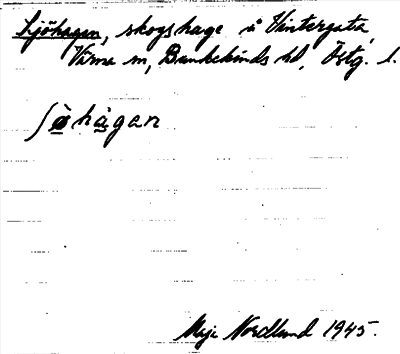 Sjöhagen, skogshage å Vintergata,
Värna sn, Bankekinds hd, Östg. l.
ʃø̀hàgan
Maja Nordlund 1945.